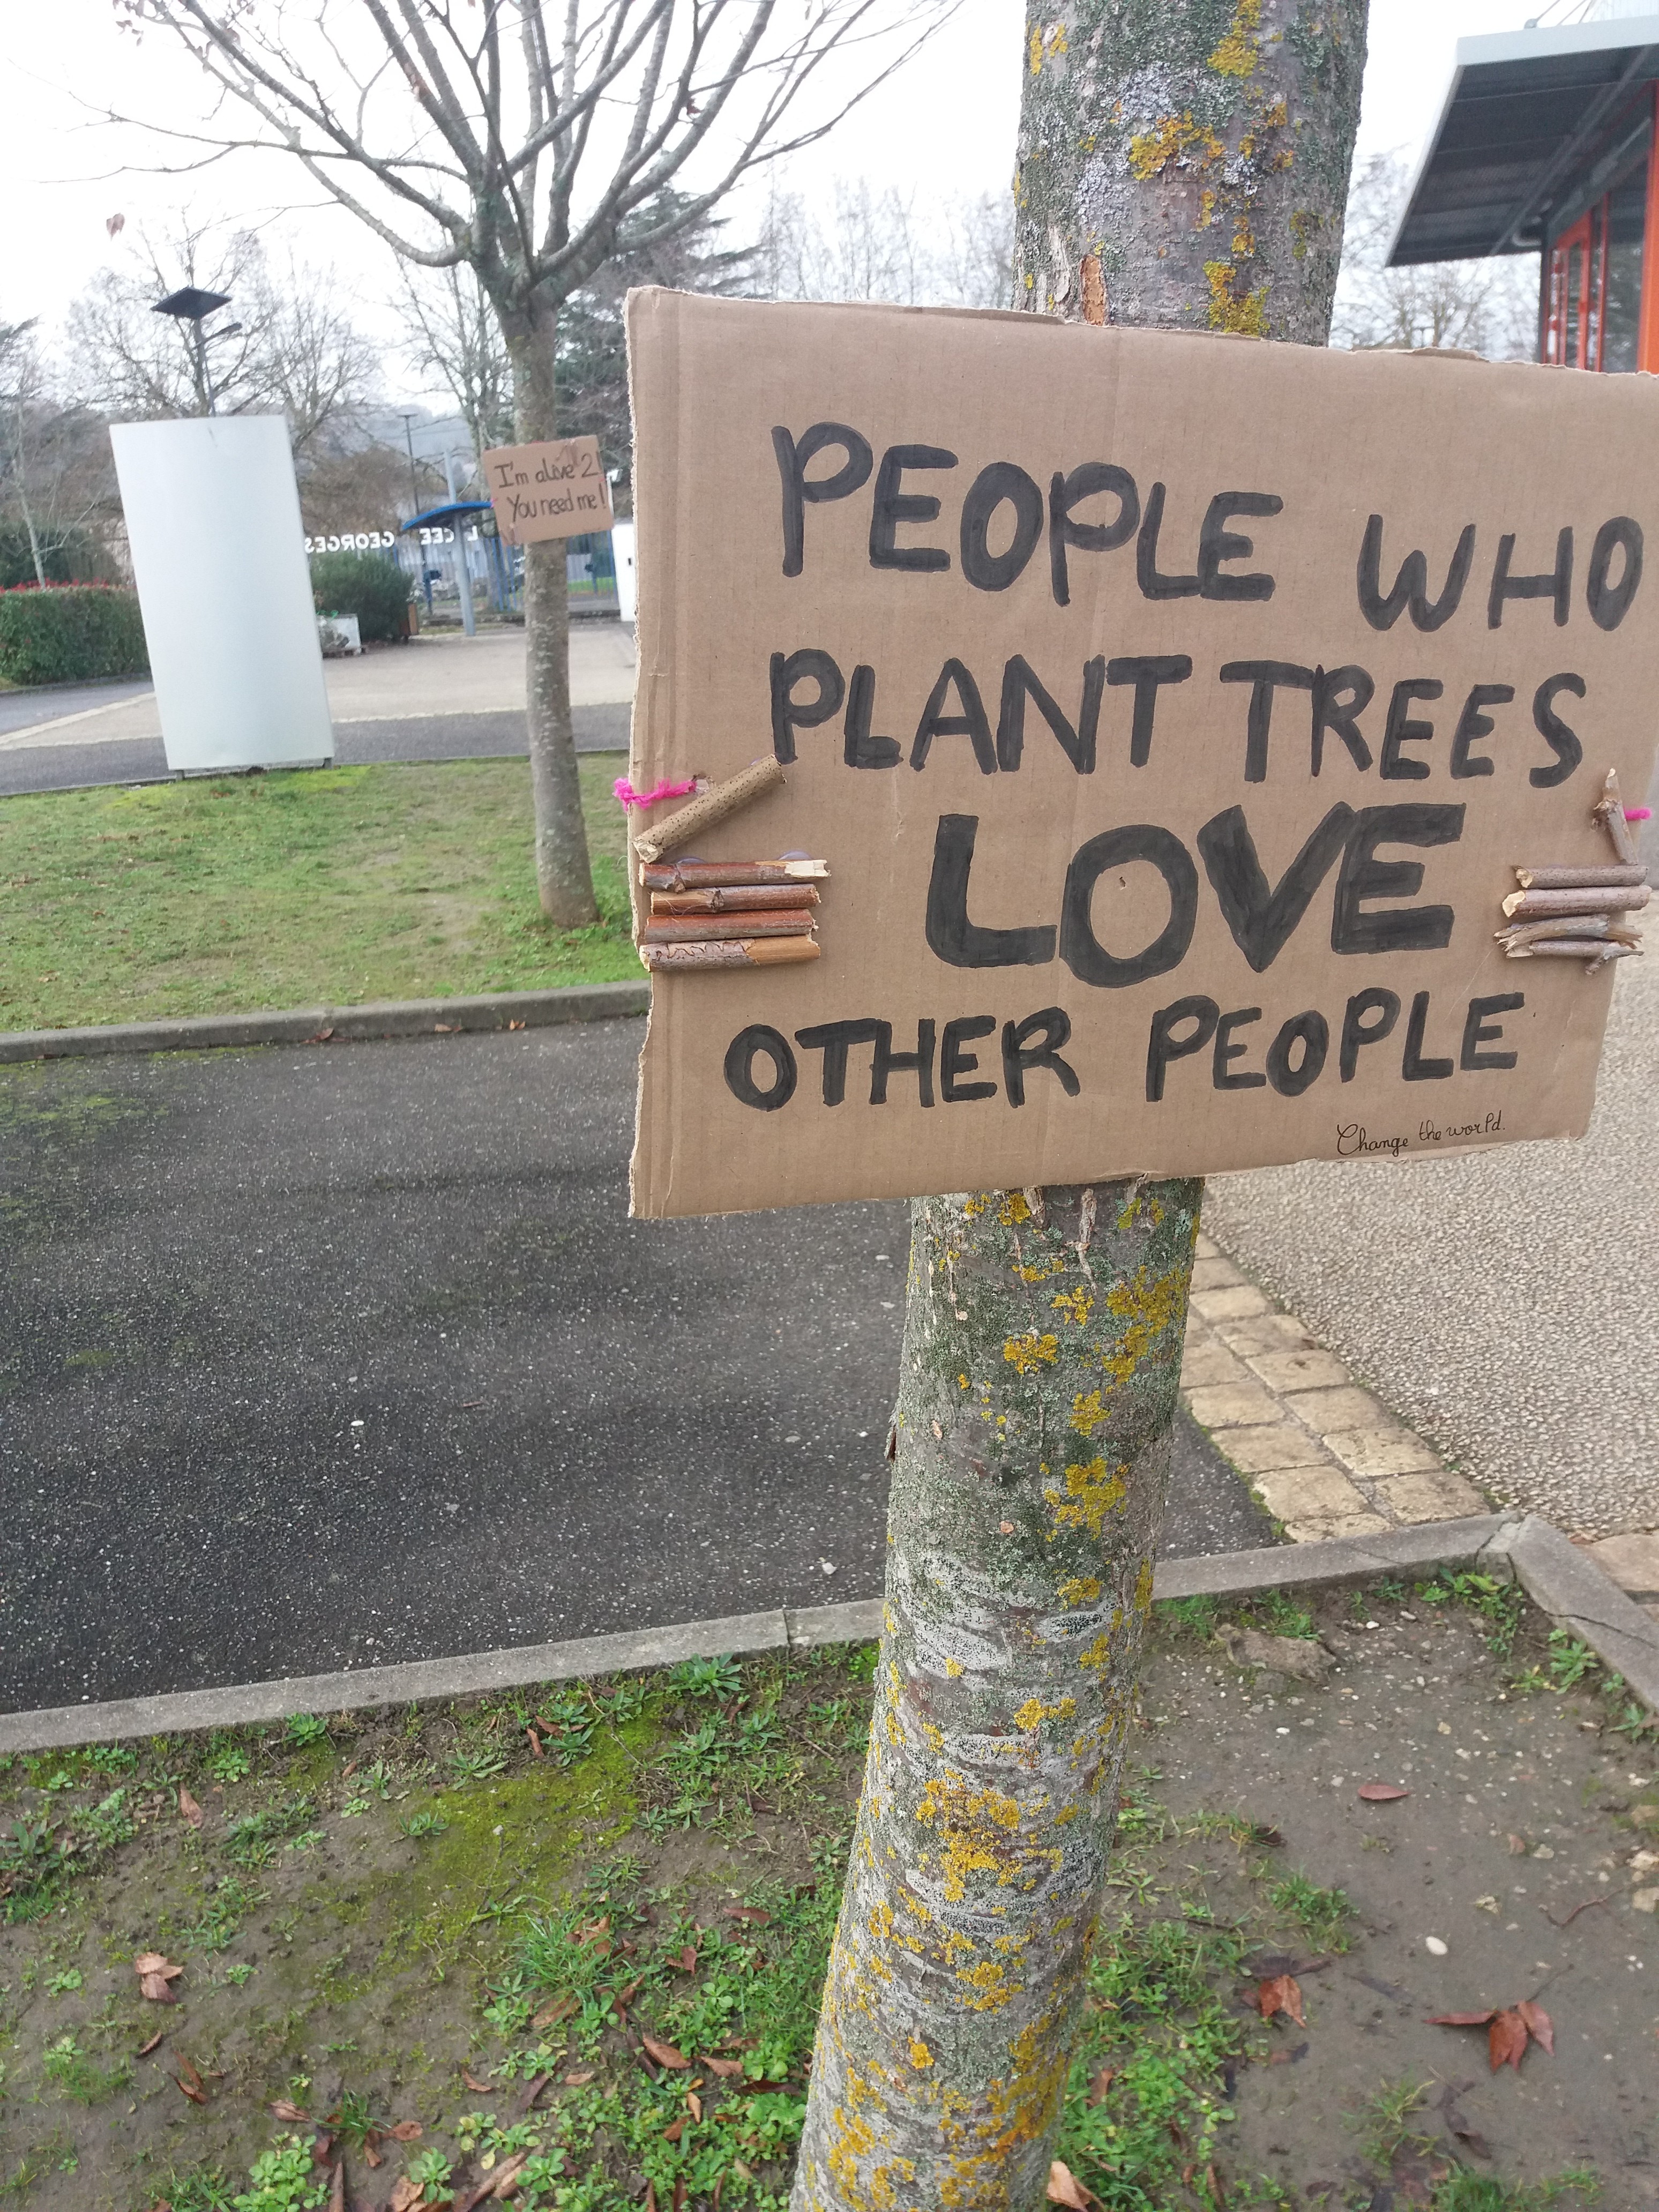 PEOPLE WHO
PLANT TREES
LOVE
OTHER PEOPLE
Change the world.
I'm alive 2!
You need me!
LYCEE GEORGES